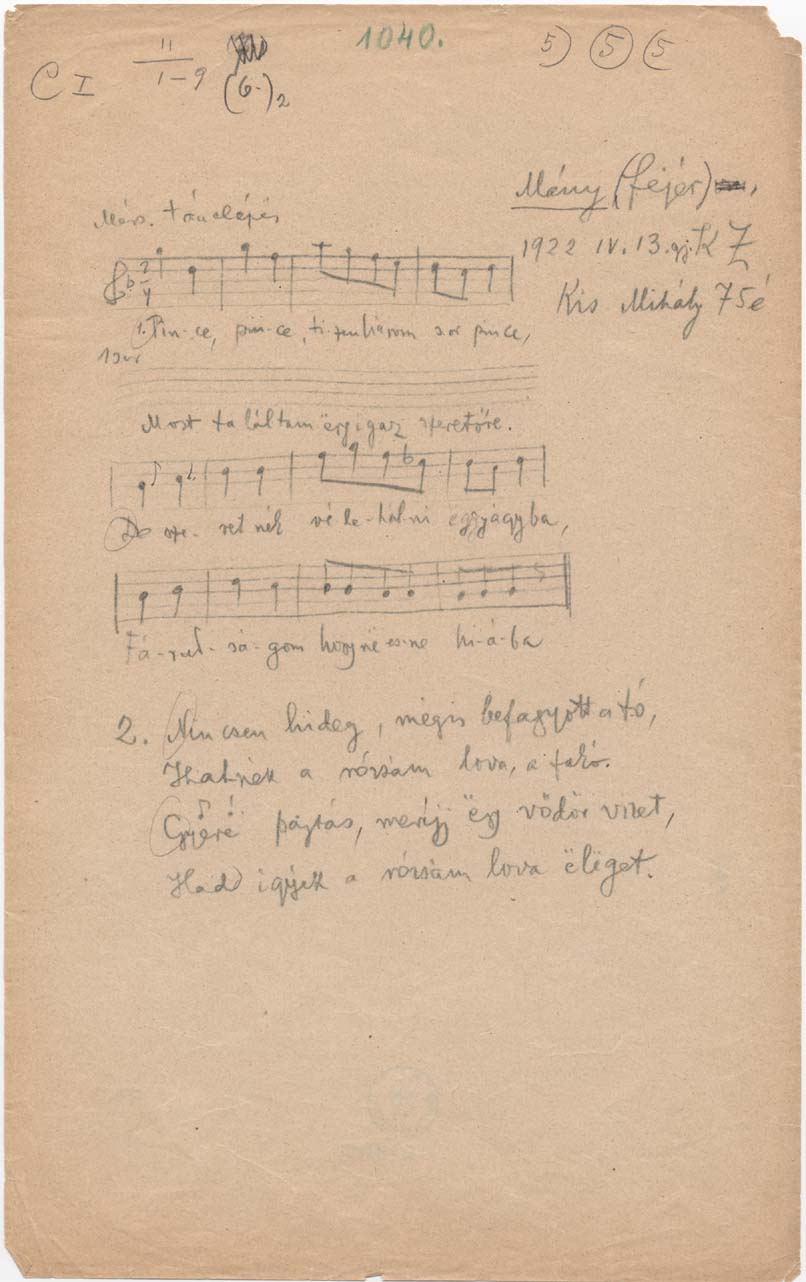 C I
II
1–9
(6.)2
1040.
5) (5) (5
Mány (Fejér),
1922 IV. 13. gy. K Z
Kis Mihály 75é
Mérs. tánclépés
2
4
1. Pin-ce, pin-ce, ti-zenhárom sor pince,
1 sor
Most ta láltam ëgy igaz szeretőre.
De sze- ret nék vë le-hál-ni ëgy ágyba,
Fá-rad-sá-gom hogy në es-ne hi-á-ba
2. Nincsen hideg, mégis befagyott a tó,
a rózsám lova, a fakó.
Gyere pajtás, meríjj ëgy vödör vizet,
Had igyék a rózsám lova ëlëget.